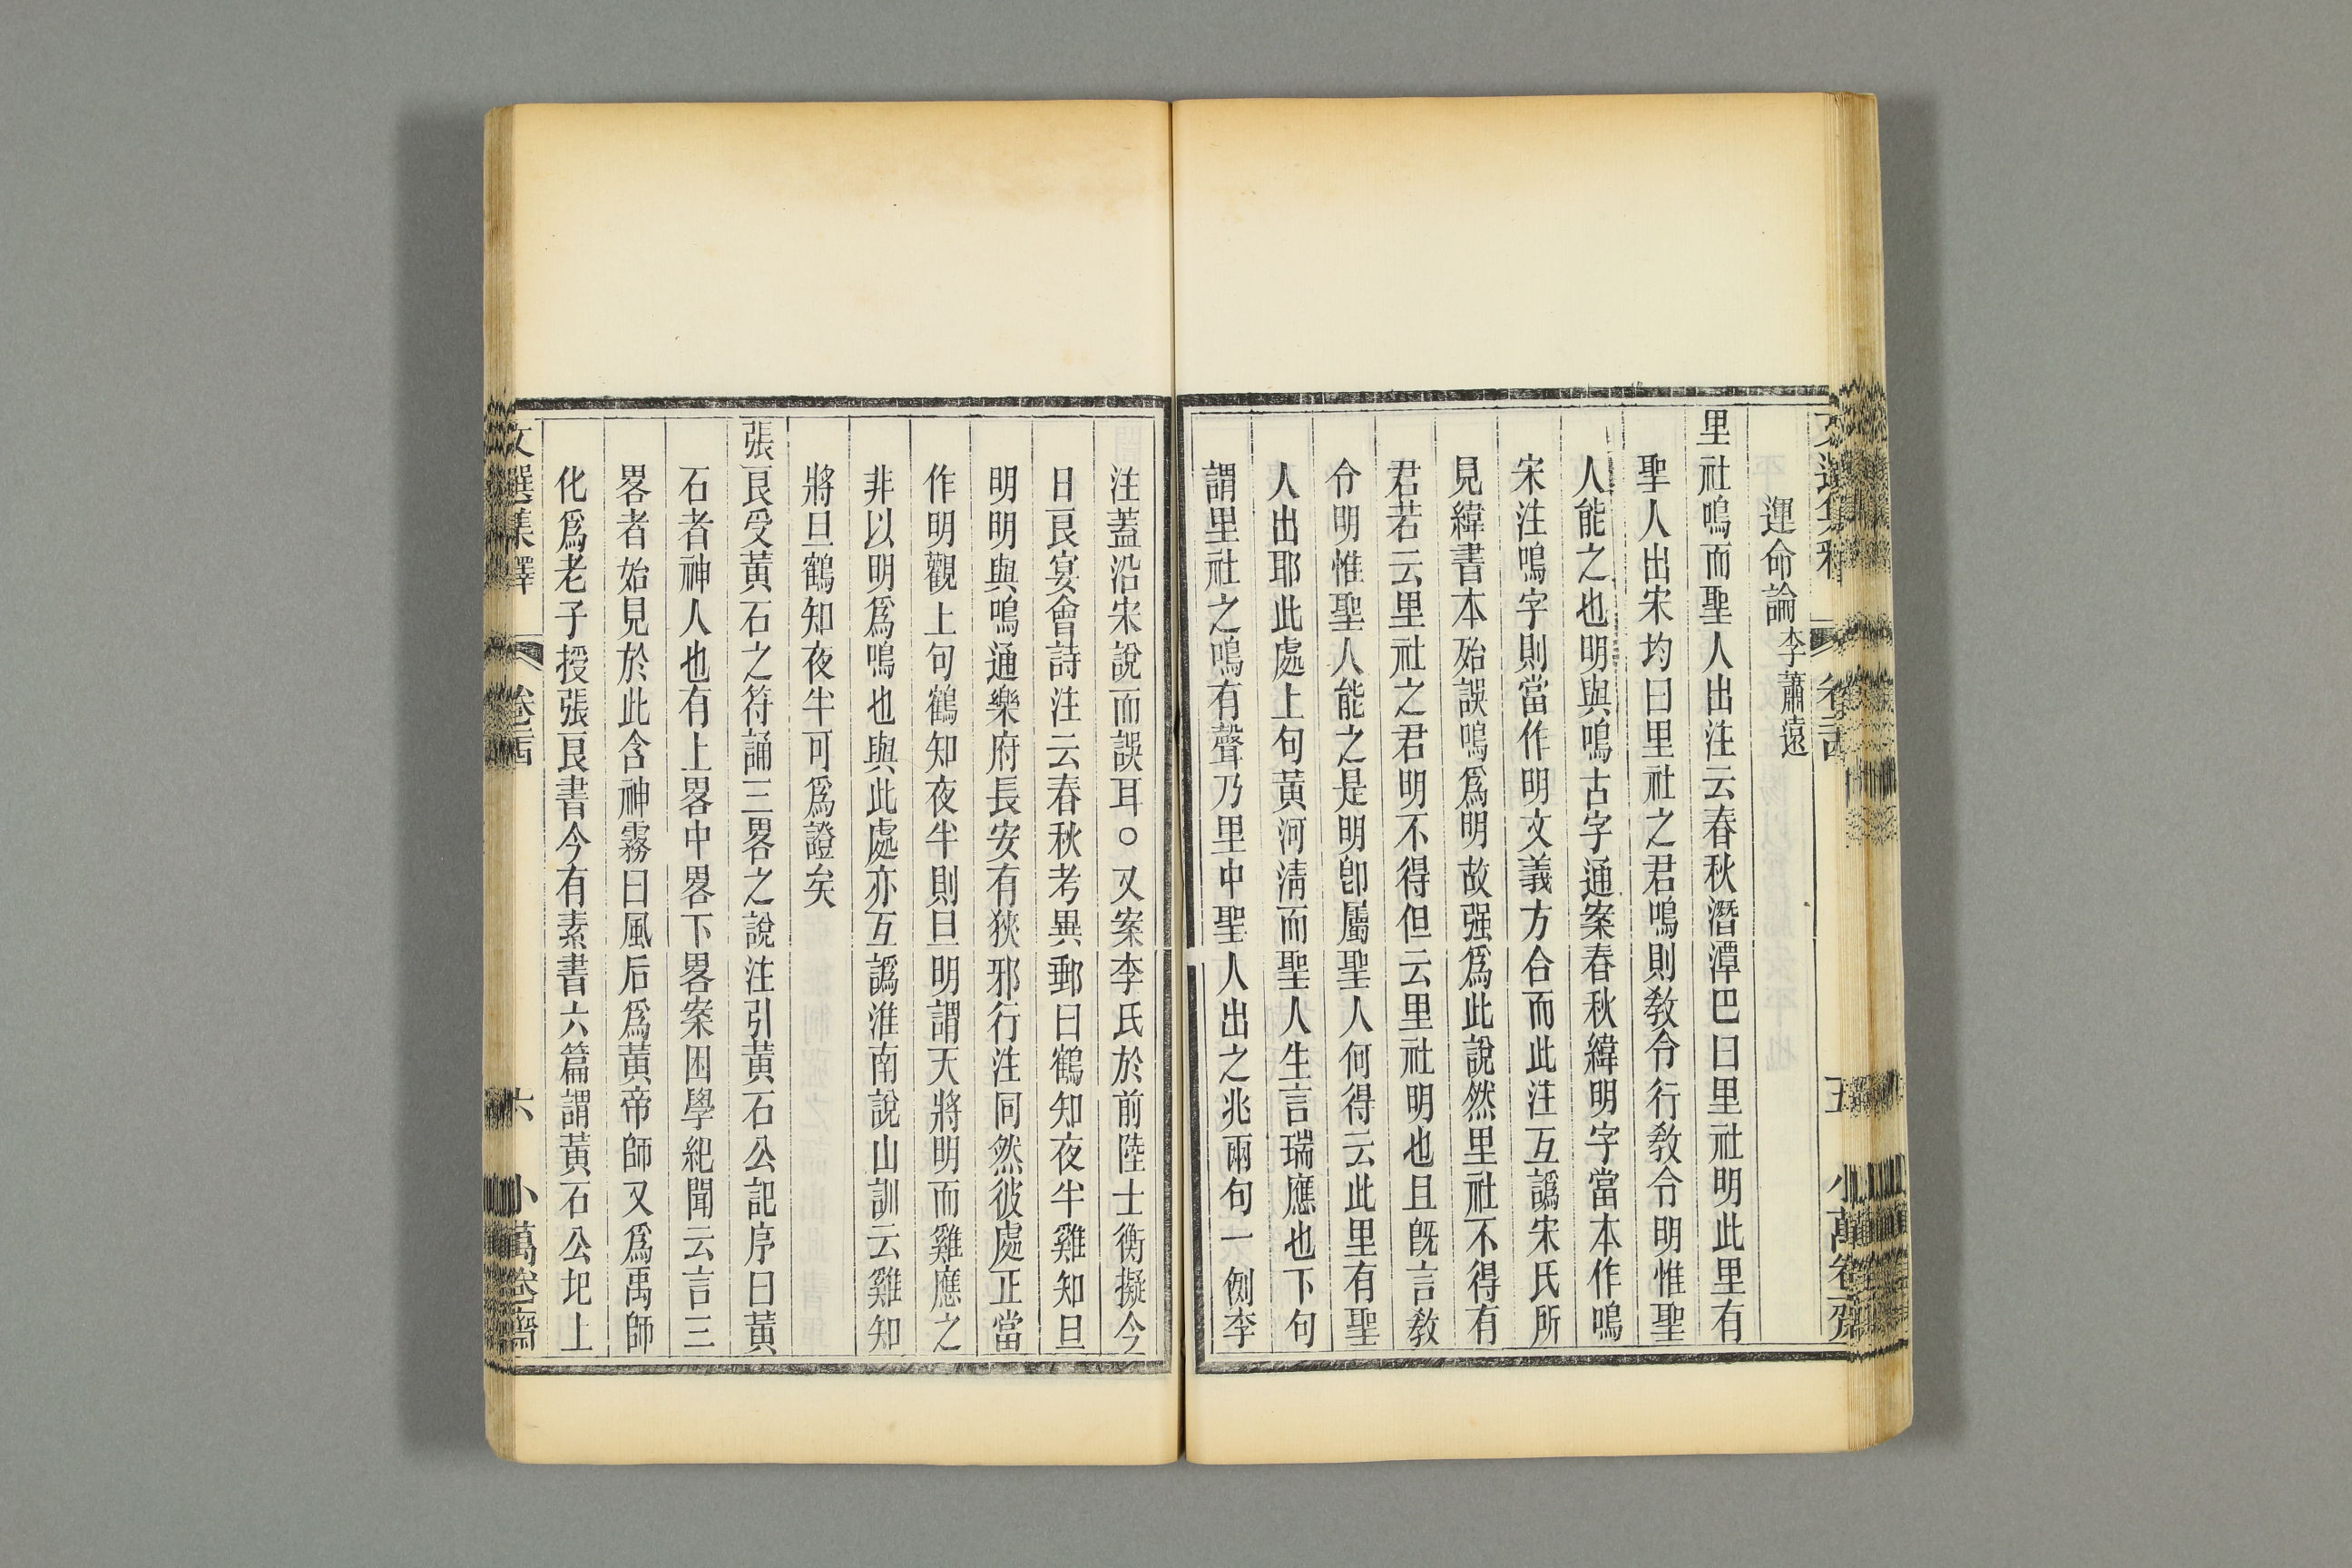 運命論李蕭遠
里社鳴而聖人出注云春秋潛潭巴曰里社明此里有
聖人出宋均曰里社之君鳴則敎令行敎令明惟聖
人能之也明與鳴古字通案春秋緯明字當本作鳴
宋注鳴字則當作明文義方合而此注互譌宋氏所
見緯書本殆誤鳴爲明故强爲此說然里社不得有
君若云里社之君明不得但云里社明也且旣言敎
令明惟聖人能之是明卽屬聖人何得云此里有聖
人出耶此處上句黃河淸而聖人生言瑞應也下句
謂里社之鳴有聲乃里中聖人出之兆兩句一例李
注蓋沿宋說而誤耳○又案李氏於前陸士衡擬今
日良宴會詩注云春秋考異郵曰鶴知夜半雞知旦
明明與鳴通樂府長安有狹邪行注同然彼處正當
作明觀上句鶴知夜半則旦明謂天將明而雞應之
非以明爲鳴也與此處亦互譌淮南說山訓云雞知
將旦鶴知夜半可爲證矣
張良受黃石之符誦三畧之說注引黃石公記序曰黃
石者神人也有上畧中畧下畧案困學紀聞云言三
畧者始見於此含神霧曰風后爲黃帝師又爲禹師
化爲老子授張良書今有素書六篇謂黃石公圯上
文選集釋
卷二十四
六
小萬卷齋